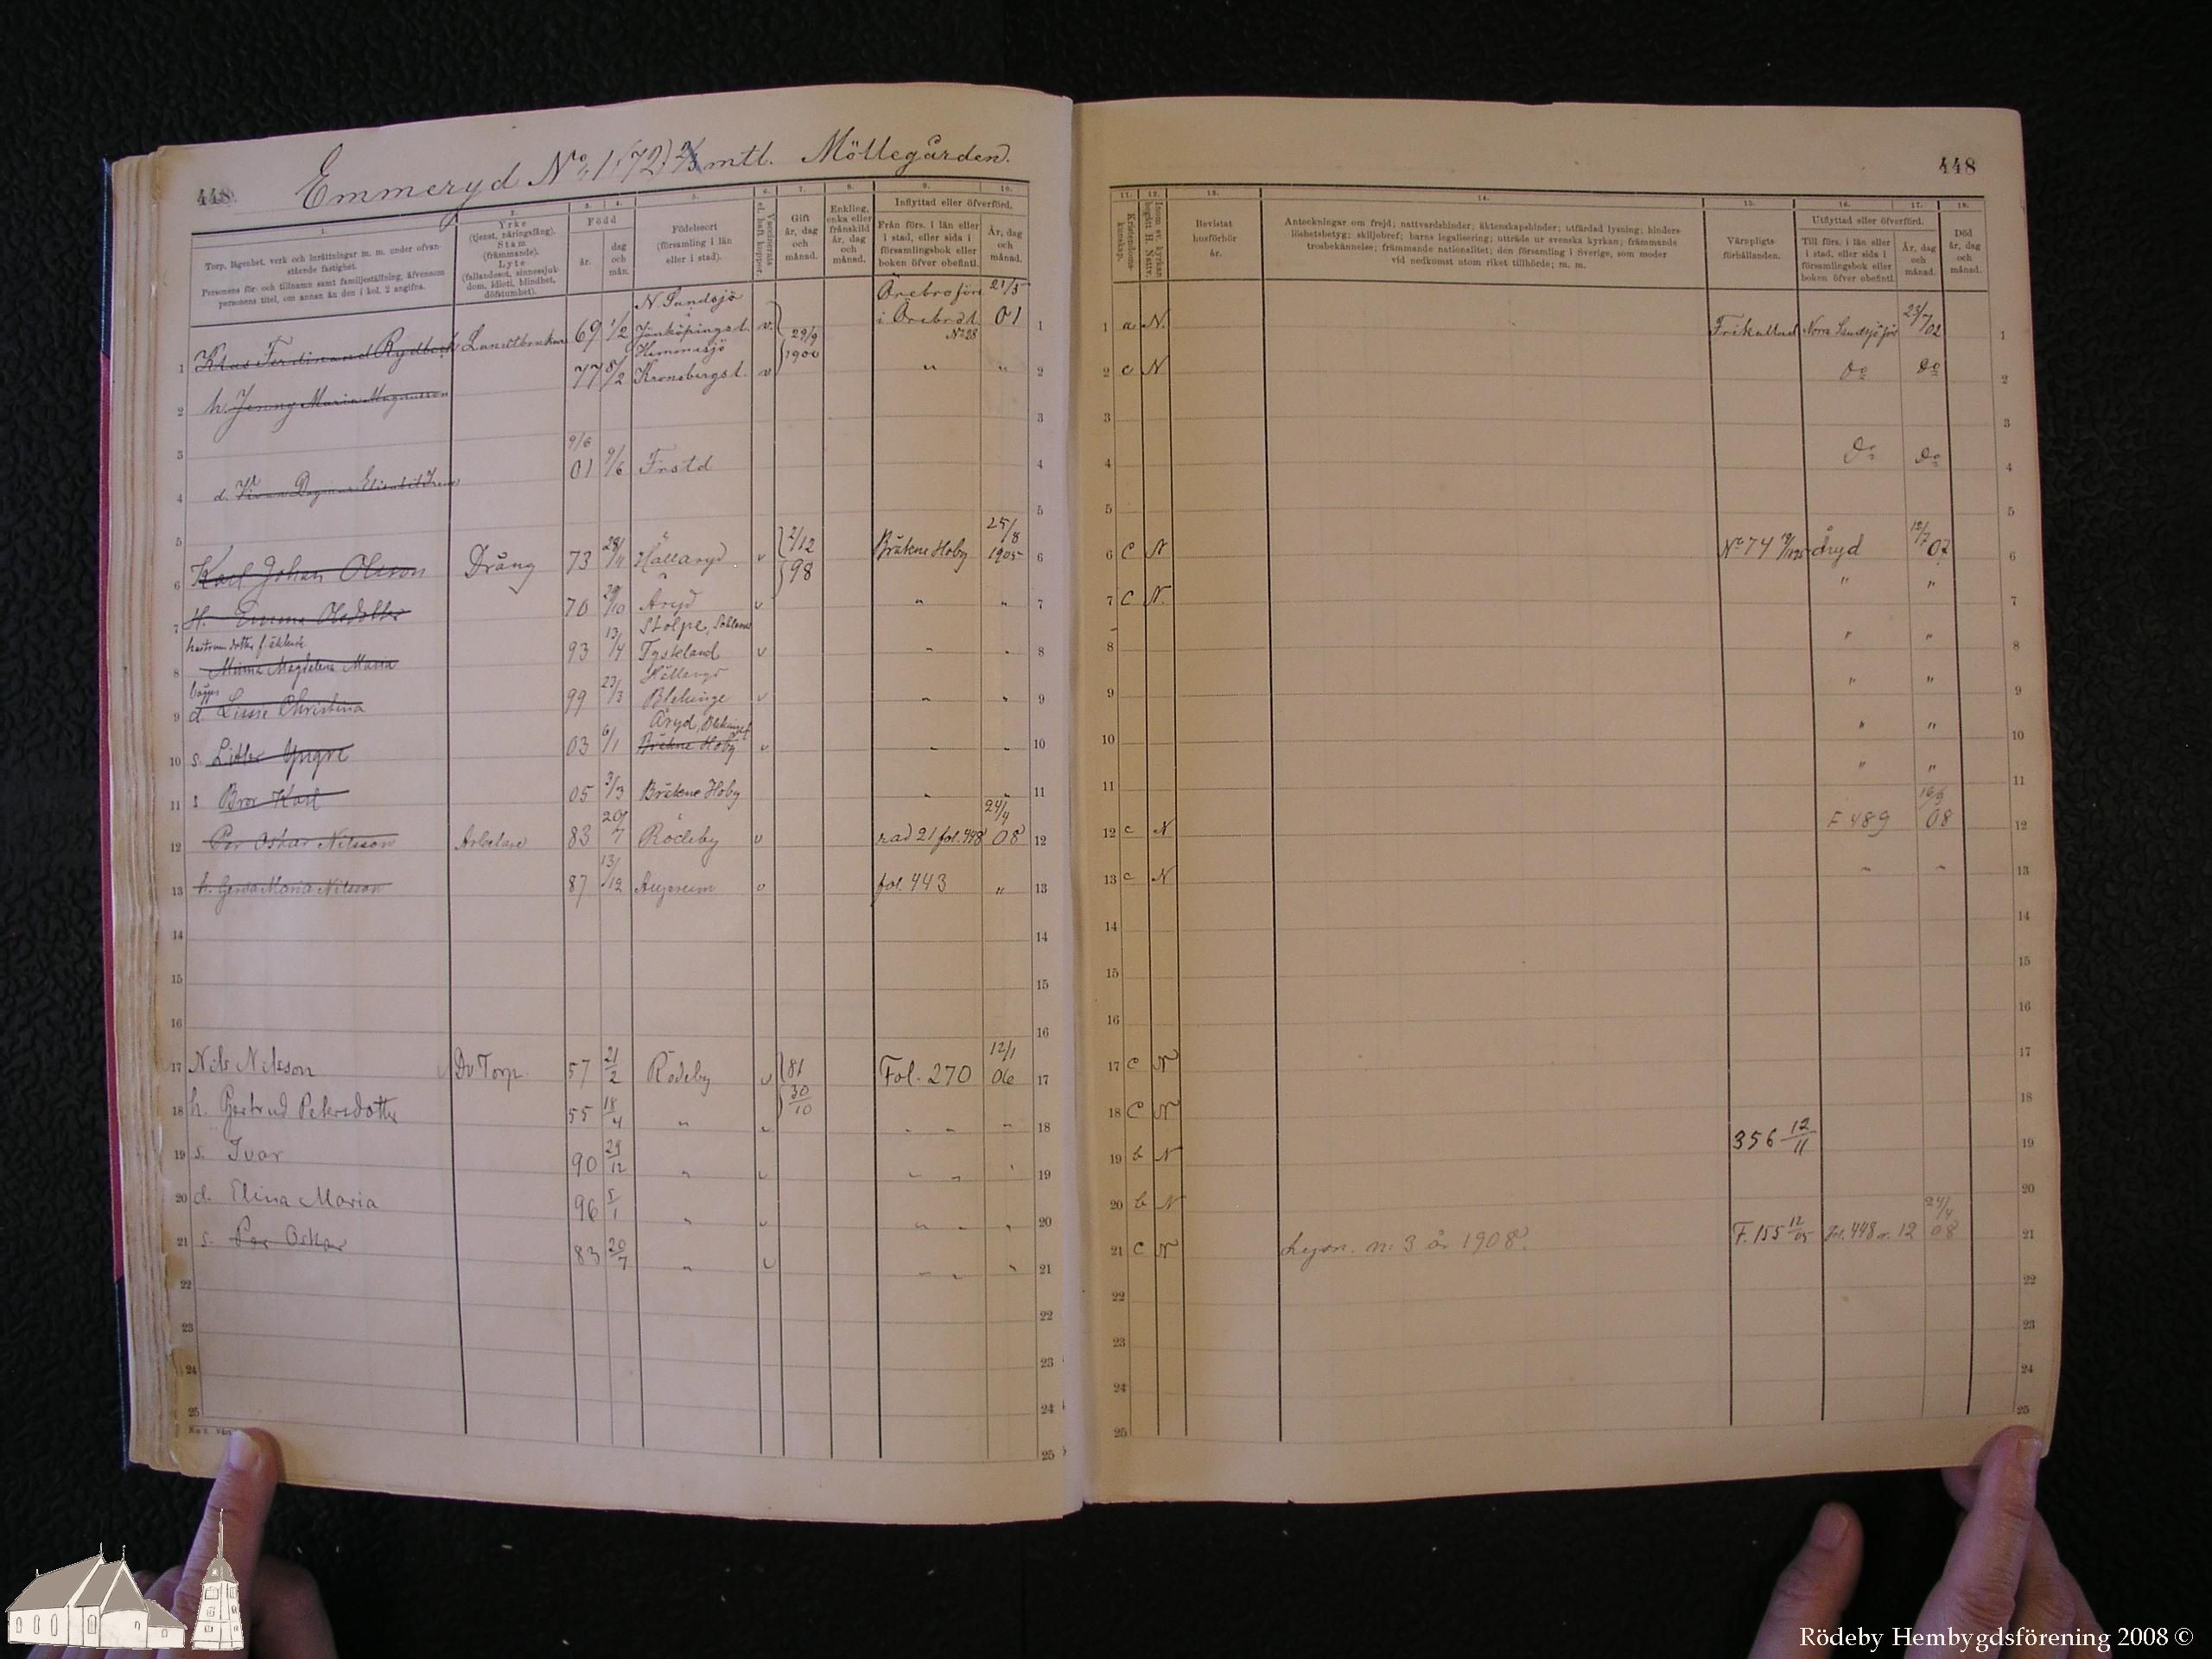 448
Emmeryd No 1 (72) 2/3 mtl. Möllegården.
448
1.
2.
3.
4.
5.
6.
7.
8.
9.
10.
Torp, lägenhet, verk och inrättningar m. m. under ofvanstående fastighet.
Personens för- och tillnamn samt familjeställning, äfvensom personens titel, om annan än den i kol. 2 angifna.
Yrke
(tjenst, näringsfång).
Stam
(främmande).
Lyte
(fallandesot, sinnessjukdom, idioti, blindhet, döfstumhet).
Född
år.
dag och mån.
Födelseort
(församling i län eller i stad).
Vaccinerats el. haft koppor.
Gift
år, dag och månad.
Enkling, enka eller frånskild år, dag och månad.
Inflyttad eller öfverförd.
Från förs. i län eller i stad, eller sida i församlingsbok eller boken öfver obefintl.
År, dag och månad.
11.
12.
13.
14.
15.
16.
17.
18.
Kristendomskunskap.
Inom sv. kyrkan begått H. Nattv.
Bevistat husförhör år.
Anteckningar om frejd; nattvardshinder; äktenskapshinder; utfärdad lysning; hinderslöshetsbetyg; skiljobref; barns legalisering; utträde ur svenska kyrkan; främmande trosbekännelse; främmande nationalitet; den församling i Sverige, som moder vid nedkomst utom riket tillhörde; m. m.
Värnpligtsförhållanden.
Utflyttad eller öfverförd.
Till förs. i län eller i stad, eller sida i församlingsbok eller boken öfver obefintl.
År, dag och månad.
Död år, dag och månad.
N. Sandsjö Örebro förs 21/5
1 Klas Ferdinand Rydbeck Landtbrukare 69 1/2 Jönköpingsl. v. 29/9 1900 i Örebro l. No 28 01 1 a N. Frikallad Norra Sandsjö förs 23/7 02 1
Hemmesjö
2 h. Jenny Maria Magnusson 77 8/2 Kronobergsl. v " " 2 c N do do 2
3 3 3 3
9/6
4 d. Dagmar Elisabet Irene 01 9/6 Frstd 4 4 do do 4
5 5 5 5
6 Karl Johan Olsson Dräng 73 28/11 Hällaryd v 2/12 98 Bräkne Hoby 25/8 1905 6 c N No 74 Åryd 12/7 07 6
7 H. Emma Olsdotter 70 29/10 Åryd v " " 7 c N. " " 7
hustruns dotter f. äktensk.
Stolpe,
8 Minna Magdalena Maria 93 13/4 Tyskland v " " 8 8 " " 8
Hällaryd
9 d. Lissie Christina 99 23/3 Blekinge v " " 9 9 " " 9
Åryd, Blekinge
10 s. Yngve 03 6/1 Bräkne Hoby v " " 10 10 " " 10
11 s Bror Karl 05 3/3 Bräkne Hoby " " 11 11 " " 11
12 Per Oskar Nilsson Arbetare 83 20/7 Rödeby v rad 21 fol. 448 24/4 08 12 c N F 489 16/9 08 12
13 h. Gerda Maria Nilsson 87 13/12 Augerum v fol. 443 " 13 c N " " 13
14 14 14 14
15 15 15 15
16 16 16 16
17 Nils Nilsson Dv Torp. 57 21/2 Rödeby v 81 30/10 Fol. 270 12/1 06 17 c N 17
18 h. Gertrud Petersdotter 55 18/4 " v " " " 18 c N 18
19 s. Ivar 90 29/12 " v " " " 19 b N 356 12/11 19
20 d. Elina Maria 96 5/1 " v " " " 20 b N 20
21 s. Per Oskar 83 20/7 " v " " " 21 c N Lysn. n: 3 år 1908. F. 155 12/05 fol. 448 r. 12 24/4 08 21
22 22 22 22
23 23 23 23
24 24 24 24
25 25 25 25
Rödeby Hembygdsförening 2008 ©